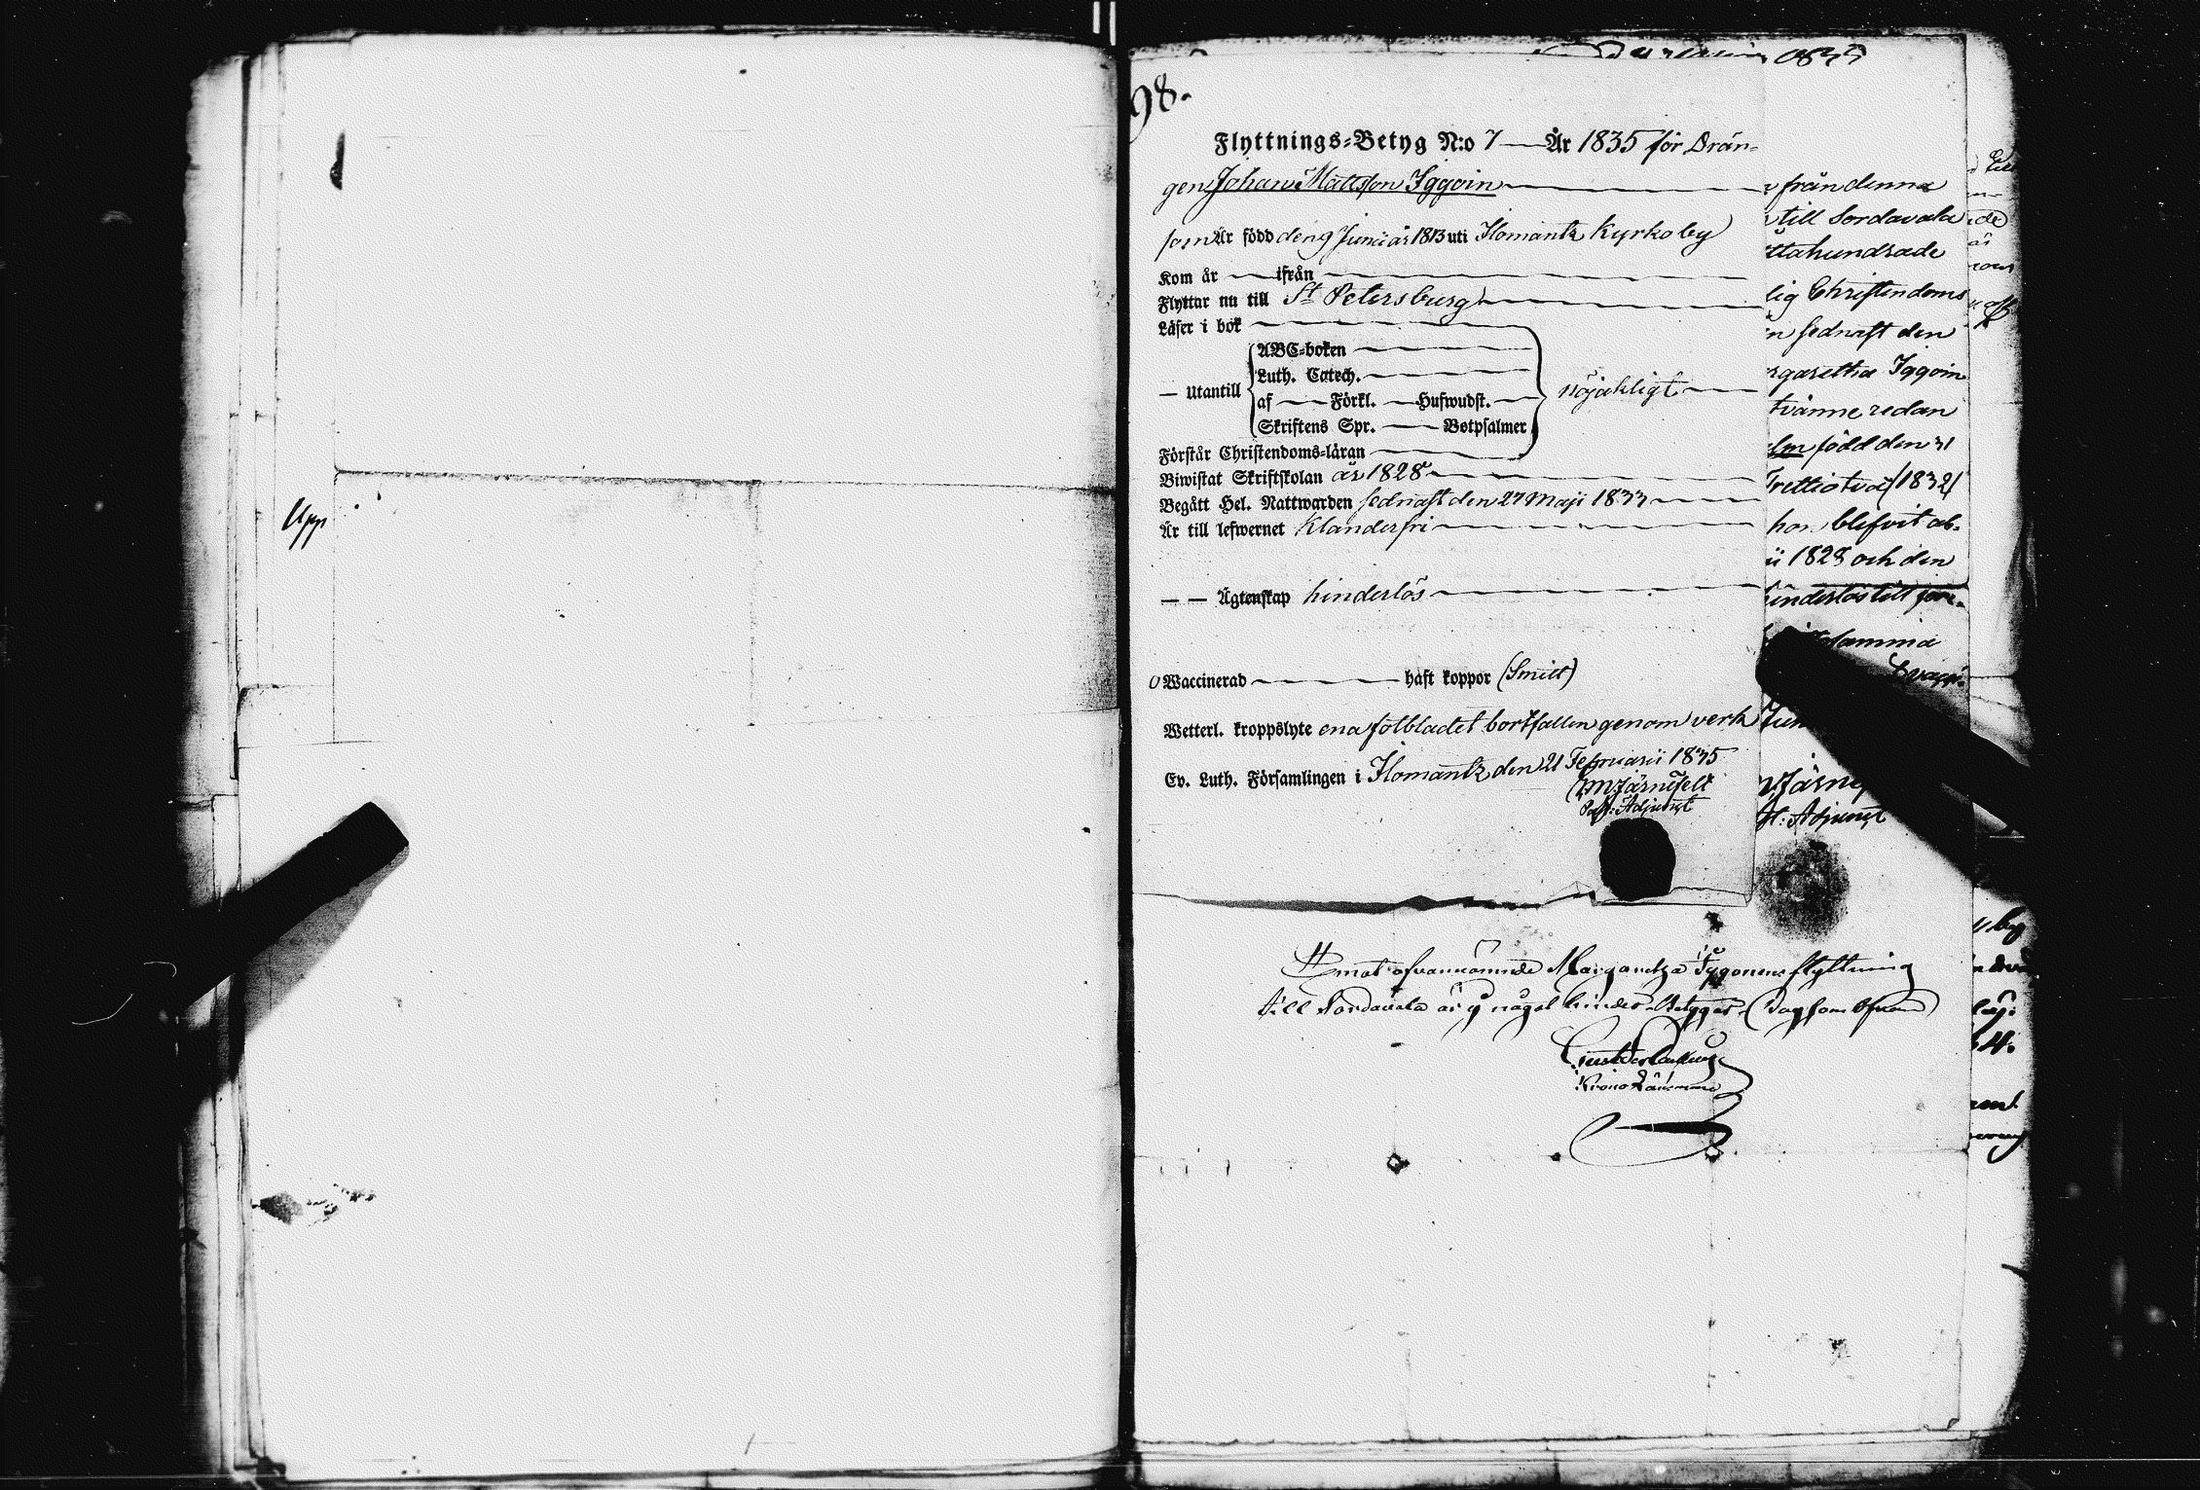 Upp
98.
Flyttnings-Betyg N:o 7 — År 1835 för Drän-
gen Johan Mattsson Iggoin
som Är född den 9 Junii år 1813 uti Ilomantz Kyrkoby
Kom år — ifrån
Flyttar nu till St Petersburg
Läser i bok
— Utantill
ABC-boken
Luth. Catech.
af — Förkl. — Hufwudst.
Skriftens Spr. — Botpsalmer
nöjakligt
Förstår Christendoms-läran
Biwistat Skriftskolan år 1828
Begått Hel. Nattwarden sednast den 27 Maji 1833
Är till lefwernet Klanderfri
— — Ägtenskap hinderlös
Waccinerad — haft koppor (Smitt)
Wetterl. kroppslyte ena fotbladet bortfallen genom verk
Ev. Luth. Församlingen i Ilomantz den 21 Februarii 1835
MJärnefelt
Past: Adjunct
från denna
till Sordavala
ttahundrade
lig Christendoms
n sednast den
rgaretha Iggoin
tvänne redan
född den 31
Trettiotvå (1832)
hon blifvit ab-
ii 1828 och den
hinderlös till
samma
t: Adjunct
Emot ofvannämnde Margaretha Iggonens flyttning
till Sordavala är ej något hinder. Betygar (Dag som ofvan)
Krono Länsman